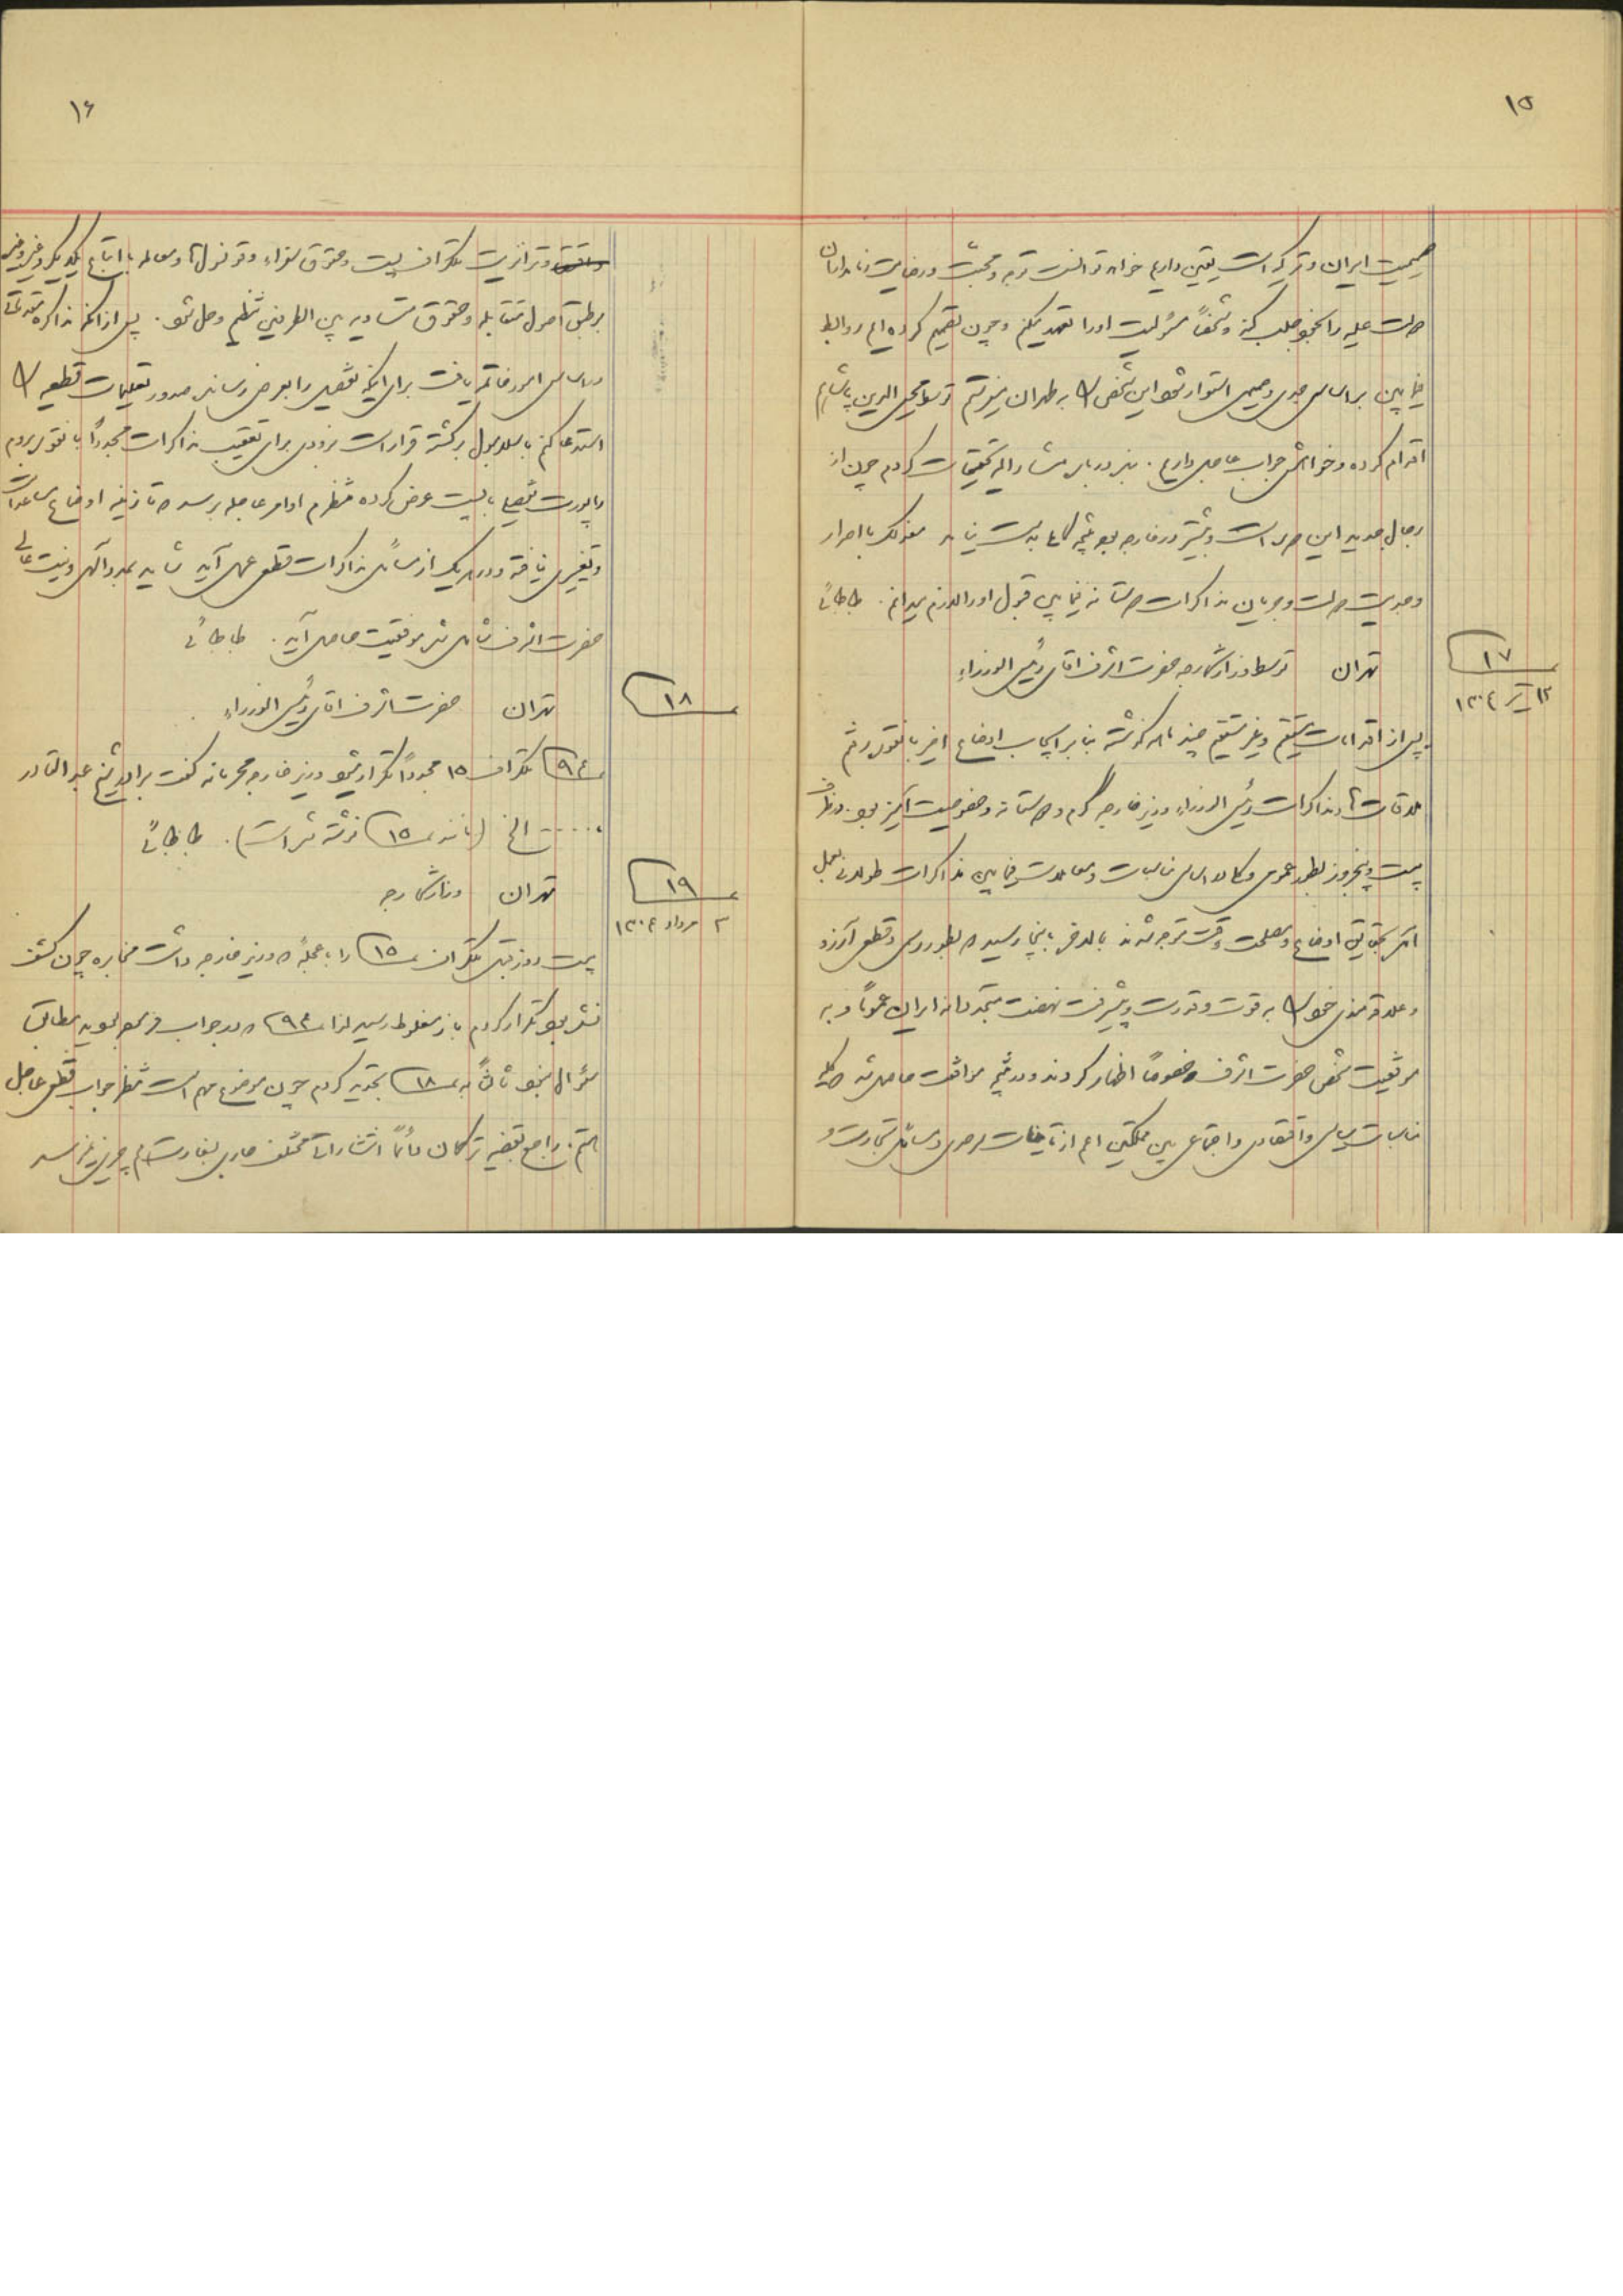 ۱۵
صمیمیت ایران و ترکیه است یقین داریم خواهد توانست توجه و محبت و رضایت زمامداران
دولت علیه را بخود جلب کند و شخصاً مسئولیت او را تعهد میکنم و چون تصمیم کرده‌ایم روابط
فیمابین بر اساس جدی و صمیمی استوار شود این شخص را به طهران میفرستم توسط محی‌الدین پاشا هم
اقدام کرده و خواهش جواب عاجل داریم. بنده درباره مشارالیه تحقیقات کردم چون از
رجال جدید این دولت و بیشتر در خارجه بوده نتیجه کامل بدست نیامد معذلک با اصرار
و جدیت دولت و جریان مذاکرات دوستانه فیمابین قبول او را لازم میدانم. طباطبائی
۱۷
۱۲ تیر ۱۳۰۴
تهران توسط وزارتخارجه حضرت اشرف آقای رئیس الوزراء
پس از اقدامات مستقیم و غیر مستقیم چند ماه گذشته بنا بر ایجاب اوضاع اخیر بانقوره رفتم
ملاقات‌ها و مذاکرات رئیس الوزراء وزیر خارجه گرم و دوستانه و خصوصیت آمیز بود. در ظرف
بیست و پنجروز بطور عمومی و کامل اساس مناسبات و معاملات فیمابین مذاکرات طولانی بعمل
آمد بحقایق اوضاع و مصلحت وقت توجه شد بالاخره باینجا رسید که بطور رسمی و قطعی آرزو
و علاقمندی خود را به قوت و قدرت و پیشرفت نهضت متجددانه ایران عموماً و به
موفقیت شخص حضرت اشرف خصوصاً اظهار کردند و در نتیجه موافقت حاصل شد که کلیه
مناسبات سیاسی و اقتصادی و اجتماعی بین مملکتین اعم از تأمینات سرحدی و مسائل تجارت و
۱۶
و ترانزیت تلگراف پست و حقوق سفراء و قونسولها و معامله با اتباع یکدیگر و غیر و غیره
بر طبق اصول متقابله و حقوق متساویه بین الطرفین تنظیم و حل شود. پس از آنکه مذاکره مقدماتی
و اساسی امروز خاتمه یافت برای اینکه تفصیل را بعرض رسانده صدور تعلیمات قطعیه را
استدعا کنم باسلامبول برگشته قرار است بزودی برای تعقیب مذاکرات مجدداً بانقوره بروم
راپورت تفصیلی با پست عرض کرده منتظرم اوامر عاجله برسد که تا زمینه اوضاع مساعد است
و تغییری نیافته در هر یک از مسائل مذاکرات قطعی بعمل آید شاید بمدد الهی و نیت عالی
حضرت اشرف شامل شده موفقیت حاصل آید. طباطبائی
۱۸
تهران حضرت اشرف آقای رئیس الوزراء
۹۴ تلگراف ۱۵ مجدداً تکرار میشود وزیر خارجه محرمانه گفت برادر شیخ عبدالقادر
..... الخ (مانند ۱۵ نوشته شده است). طباطبائی
۱۹
۲ مرداد ۱۳۰۴
تهران وزارتخارجه
بیست روز قبل تلگراف ۱۵ را با عجله که وزیر خارجه داشت مخابره چون کشف
نشده بود تکرار کردم باز مغلوط رسید لذا ۹۴ که در جواب فرموده بودید مطابق
سئوال نبود ثالثاً به ۱۸ تجدید کردم چون موضوع مهم است منتظر جواب قطعی عاجل
هستم. راجع بقضیه ترکمان دائماً انتشارات مختلف میدهند سفارت هم چیزی نمیرسد